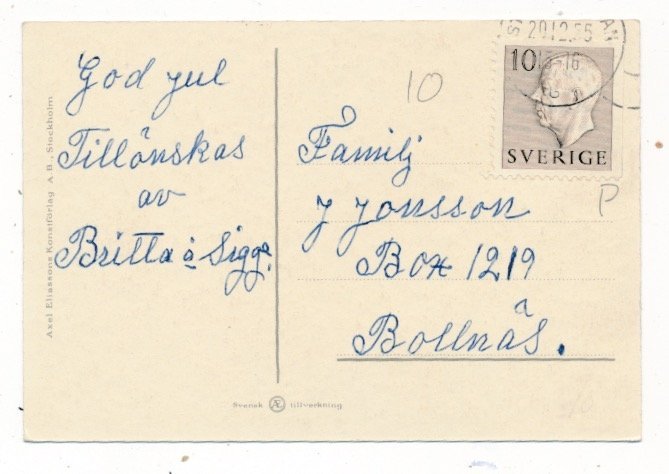 God jul
Tillönskas
av
Britta å Sigge.
Axel Eliassons Konstförlag A.B., Stockholm
20.12.56
10
SVERIGE
10
P
Familj
J Jonsson
Box 1219
Bollnäs.
Svensk Æ tillverkning